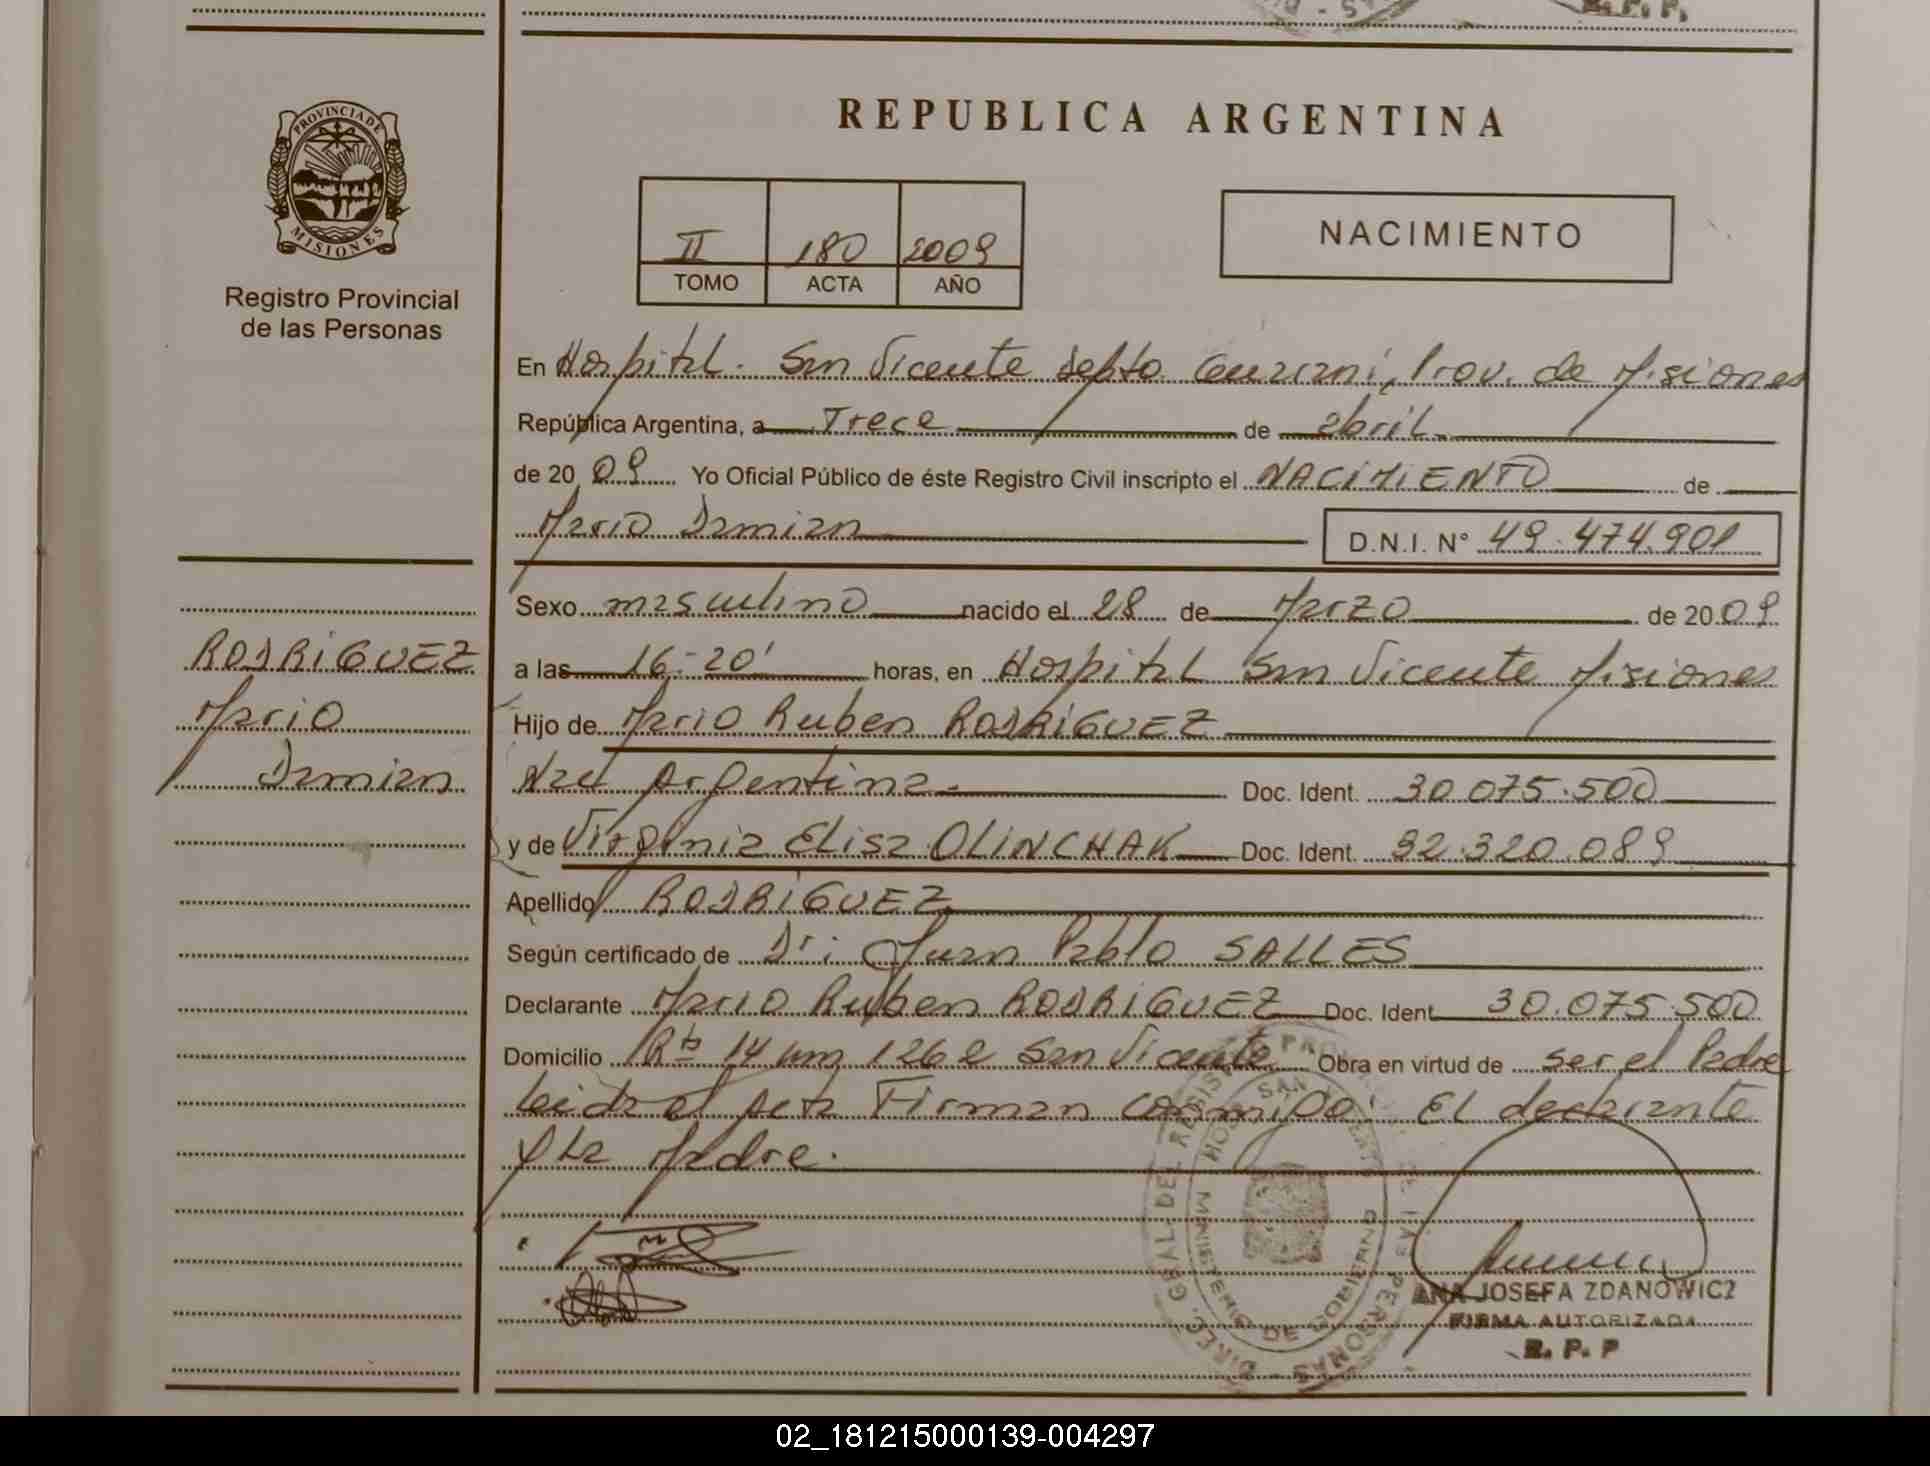 R. P. P.
PROVINCIA DE
MISIONES
Registro Provincial
de las Personas
REPUBLICA ARGENTINA
II 180 2009
TOMO ACTA AÑO
NACIMIENTO
En Hospital. San Vicente Depto Guarani, Prov. de Misiones
República Argentina, a Trece de abril
de 20 09 Yo Oficial Público de éste Registro Civil inscripto el NACIMIENTO de
Mario Damian D.N.I. N° 49.474.901
Sexo masculino nacido el 28 de Marzo de 20 09
a las 16-20' horas, en Hospital San Vicente Misiones
Hijo de Mario Ruben RODRIGUEZ
Nac Argentina. Doc. Ident. 30.075.500
y de Virginia Elisa OLINCHAK Doc. Ident. 32.320.089
Apellido RODRIGUEZ
Según certificado de Dr: Juan Pablo SALLES
Declarante Mario Ruben RODRIGUEZ Doc. Ident 30.075.500
Domicilio Rta 14 km 1262 San Vicente Obra en virtud de ser el Padre
Leida el Acta Firman conmigo: El declarante
y La Madre.
RODRIGUEZ
Mario
Damian
MINISTERIO DE GOBIERNO
ANA JOSEFA ZDANOWICZ
FIRMA AUTORIZADA
R. P. P
02_181215000139-004297